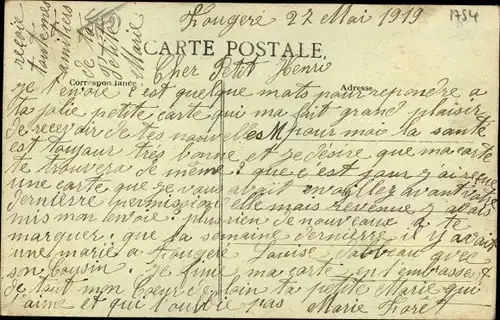 Fougeré 22 Mai 1919
1754
reçoie
toutes mes
amitiers
de ta
Petite
Marie
CARTE POSTALE
Cher Petit Henri
Correspondance
Adresse
Je t'envoie c'est quelque mots pour repondre a
ta jolie petite carte qui ma fait grand plaisir
de recevoir de tes nouvelles pour moi la sante
est toujour très bonne et je désire que ma carte
te trouvera de même : que c'est jour j'ai reçue
une carte que je vous avait envoillez avant votre
dernierre permission elle mais revenue j'avais
mis mon envoie : plus rien de nouveaux a te
marquer que la semaine dernierre il y avais
une marié a Fougeré Louise avec
son Cousin . Je fini ma carte en t'embrassent
de tout mon Coeur de loin ta petite Marie qui
t'aime et qui t'oublie pas Marie Forêt